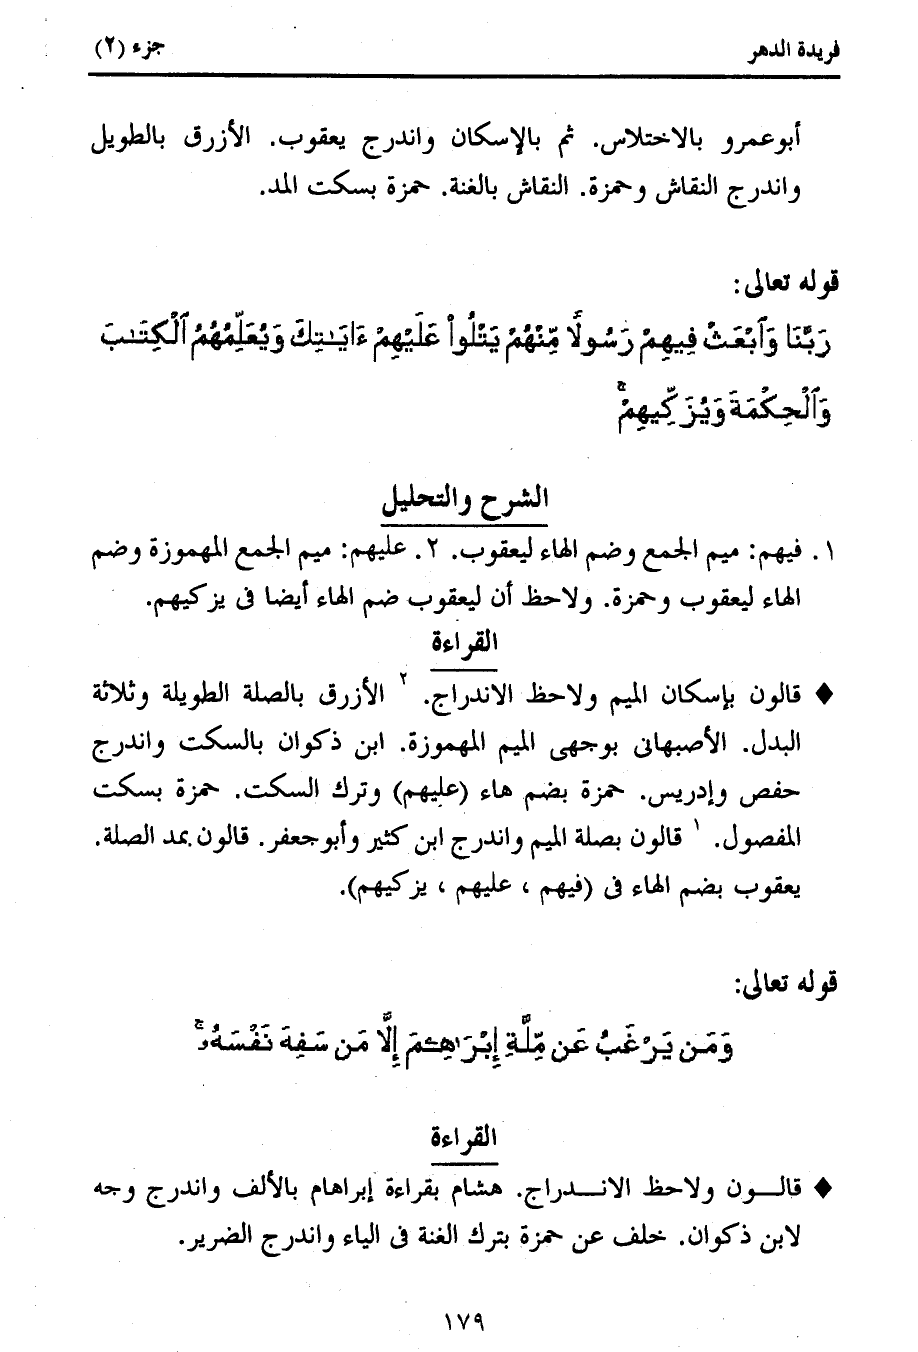 فريدة الدهر
جزء (٢)
أبوعمرو بالاختلاس. ثم بالإسكان واندرج يعقوب. الأزرق بالطويل
واندرج النقاش وحمزة. النقاش بالغنة. حمزة بسكت المد.
قوله تعالى:
رَبَّنَا وَٱبْعَثْ فِيهِمْ رَسُولًا مِّنْهُمْ يَتْلُوا۟ عَلَيْهِمْ ءَايَـٰتِكَ وَيُعَلِّمُهُمُ ٱلْكِتَـٰبَ
وَٱلْحِكْمَةَ وَيُزَكِّيهِمْ ۚ
الشرح والتحليل
١. فيهم: ميم الجمع وضم الهاء ليعقوب. ٢. عليهم: ميم الجمع المهموزة وضم
الهاء ليعقوب وحمزة. ولاحظ أن ليعقوب ضم الهاء أيضا فى يزكيهم.
القراءة
♦ قالون بإسكان الميم ولاحظ الاندراج. ٢ الأزرق بالصلة الطويلة وثلاثة
البدل. الأصبهانى بوجهى الميم المهموزة. ابن ذكوان بالسكت واندرج
حفص وإدريس. حمزة بضم هاء (عليهم) وترك السكت. حمزة بسكت
المفصول. ١ قالون بصلة الميم واندرج ابن كثير وأبوجعفر. قالون بمد الصلة.
يعقوب بضم الهاء فى (فيهم ، عليهم ، يزكيهم).
قوله تعالى:
وَمَن يَرْغَبُ عَن مِّلَّةِ إِبْرَٰهِـۧمَ إِلَّا مَن سَفِهَ نَفْسَهُۥ ۚ
القراءة
♦ قالـــون ولاحظ الانـــدراج. هشام بقراءة إبراهام بالألف واندرج وجه
لابن ذكوان. خلف عن حمزة بترك الغنة فى الياء واندرج الضرير.
١٧٩